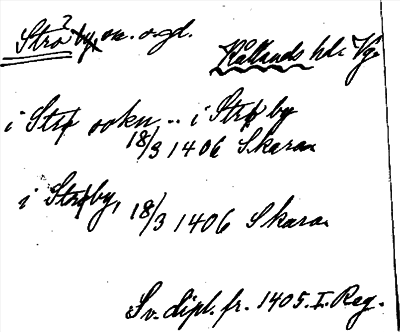 Strø? by, on. o. gd.
Kållands hd. Vg.
i Strø sokn .. i Strø by
18/3 1406 Skara
i Strøby, 18/3 1406 Skara
Sv. dipl. fr. 1405. I. Reg.